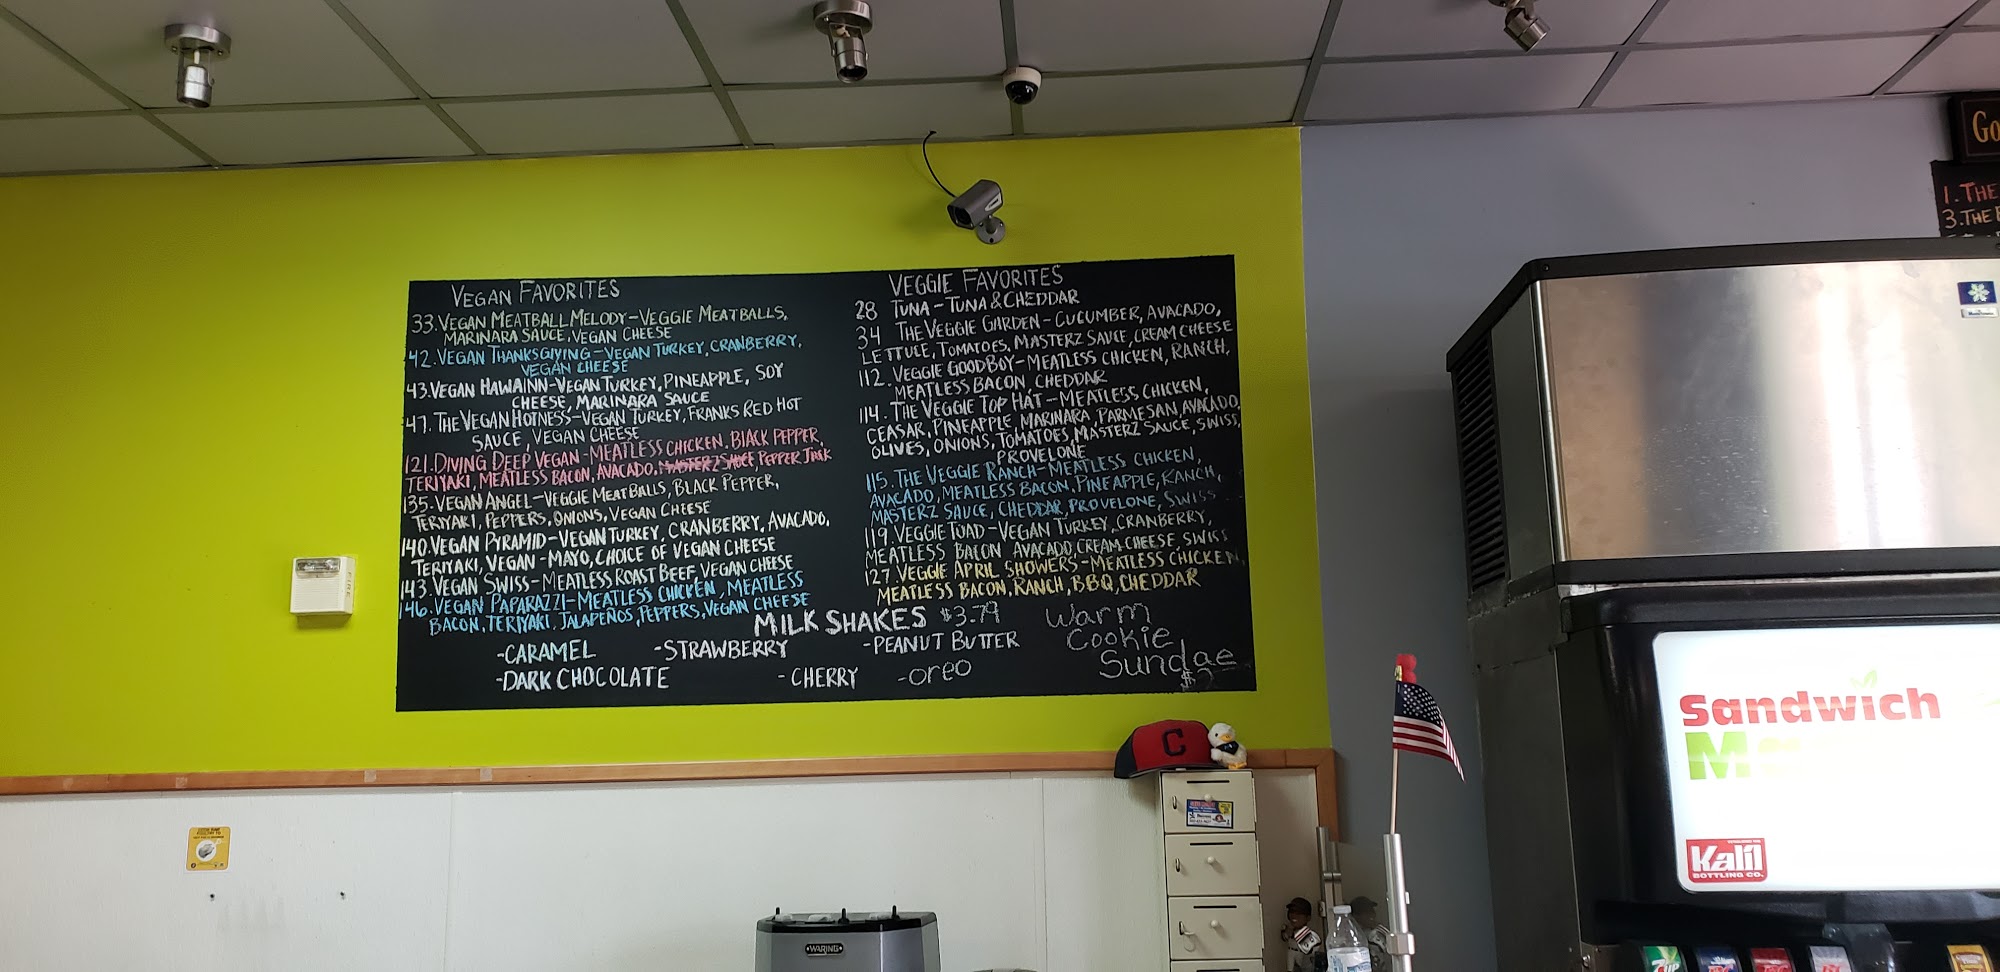 VEGAN FAVORITES
33. VEGAN MEATBALL MELODY - VEGGIE MEATBALLS,
MARINARA SAUCE, VEGAN CHEESE
42. VEGAN THANKSGIVING - VEGAN TURKEY, CRANBERRY,
VEGAN CHEESE
43. VEGAN HAWAINN - VEGAN TURKEY, PINEAPPLE, SOY
CHEESE, MARINARA SAUCE
47. THE VEGAN HOTNESS - VEGAN TURKEY, FRANKS RED HOT
SAUCE, VEGAN CHEESE
121. DIVING DEEP VEGAN - MEATLESS CHICKEN, BLACK PEPPER,
TERIYAKI, MEATLESS BACON, AVACADO, MASTERZ SAUCE, PEPPER JACK
135. VEGAN ANGEL - VEGGIE MEATBALLS, BLACK PEPPER,
TERIYAKI, PEPPERS, ONIONS, VEGAN CHEESE
140. VEGAN PYRAMID - VEGAN TURKEY, CRANBERRY, AVACADO,
TERIYAKI, VEGAN-MAYO, CHOICE OF VEGAN CHEESE
143. VEGAN SWISS - MEATLESS ROAST BEEF, VEGAN CHEESE
146. VEGAN PAPARAZZI - MEATLESS CHICKEN, MEATLESS
BACON, TERIYAKI, JALAPEÑOS, PEPPERS, VEGAN CHEESE
VEGGIE FAVORITES
28 TUNA - TUNA & CHEDDAR
34 THE VEGGIE GARDEN - CUCUMBER, AVACADO,
LETTUCE, TOMATOES, MASTERZ SAUCE, CREAM CHEESE
112. VEGGIE GOODBOY - MEATLESS CHICKEN, RANCH,
MEATLESS BACON, CHEDDAR
114. THE VEGGIE TOP HAT - MEATLESS CHICKEN,
CEASAR, PINEAPPLE, MARINARA, PARMESAN, AVACADO,
OLIVES, ONIONS, TOMATOES, MASTERZ SAUCE, SWISS,
PROVELONE
115. THE VEGGIE RANCH - MEATLESS CHICKEN,
AVACADO, MEATLESS BACON, PINEAPPLE, RANCH,
MASTERZ SAUCE, CHEDDAR, PROVELONE, SWISS
119. VEGGIE TOAD - VEGAN TURKEY, CRANBERRY,
MEATLESS BACON AVACADO, CREAM CHEESE, SWISS
127. VEGGIE APRIL SHOWERS - MEATLESS CHICKEN,
MEATLESS BACON, RANCH, BBQ, CHEDDAR
MILK SHAKES $3.79
-CARAMEL -STRAWBERRY -PEANUT BUTTER
-DARK CHOCOLATE -CHERRY -OREO
Warm
Cookie
Sundae
Go
1. THE
3. THE
Sandwich
M
Kalil
BOTTLING CO.
C
WARING
FIRE
7UP